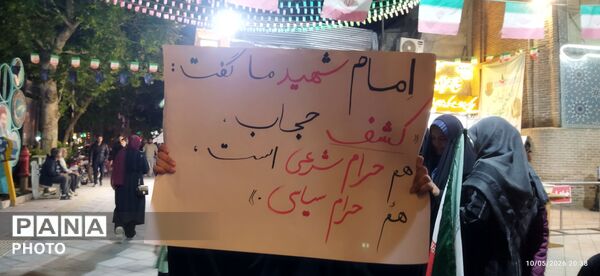 اِمام شهید ما گفت:
«کشف حجاب،
هم حرام شرعی است،
هم حرام سیاسی.»
PANA
PHOTO
10/05/2026 20:38